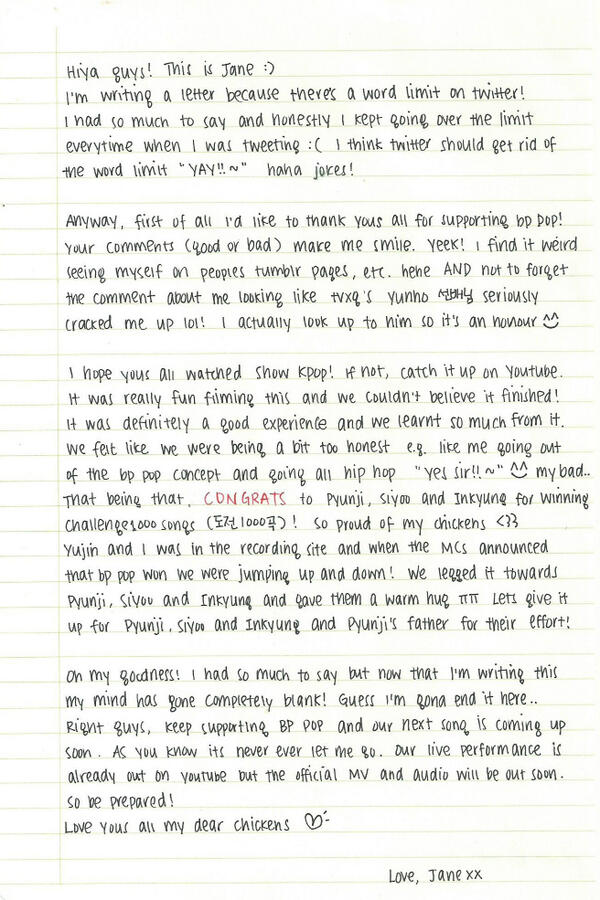 Hiya guys! This is Jane :)
I'm writing a letter because there's a word limit on twitter!
I had so much to say and honestly I kept going over the limit
everytime when I was tweeting :( I think twitter should get rid of
the word limit "YAY!!~" haha jokes!
Anyway, first of all I'd like to thank yous all for supporting bp pop!
Your comments (good or bad) make me smile. Yeek! I find it weird
seeing myself on peoples tumblr pages, etc. hehe AND not to forget
the comment about me looking like tvxq's yunho 선배님 seriously
cracked me up lol! I actually look up to him so it's an honour ^^
I hope yous all watched show kpop! If not, catch it up on Youtube.
It was really fun filming this and we couldn't believe it finished!
It was definitely a good experience and we learnt so much from it.
We felt like we were being a bit too honest e.g. like me going out
of the bp pop concept and going all hip hop "yes sir!!~" ^^ my bad..
That being that, CONGRATS to Pyunji, Siyoo and Inkyung for winning
Challenge1000 songs (도전1000곡)! So proud of my chickens <33
Yujin and I was in the recording site and when the MCs announced
that bp pop won we were jumping up and down! We legged it towards
Pyunji, Siyoo and Inkyung and gave them a warm hug ㅠㅠ Lets give it
up for Pyunji, Siyoo and Inkyung and Pyunji's father for their effort!
Oh my goodness! I had so much to say but now that I'm writing this
my mind has gone completely blank! Guess I'm gona end it here..
Right guys, keep supporting BP POP and our next song is coming up
soon. As you know its never ever let me go. Our live performance is
already out on youtube but the official MV and audio will be out soon.
So be prepared!
Love yous all my dear chickens ♡
Love, Jane xx